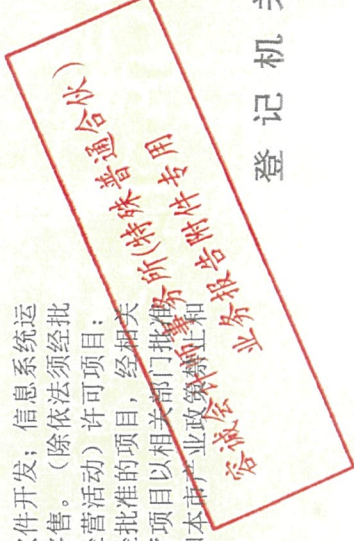 软件开发；信息系统运
售。（除依法须经批
营活动）许可项目：
批准的项目，经相关
项目以相关部门批准
本市产业政策禁止和
容诚会计师事务所(特殊普通合伙)
业务报告附件专用
登记机关